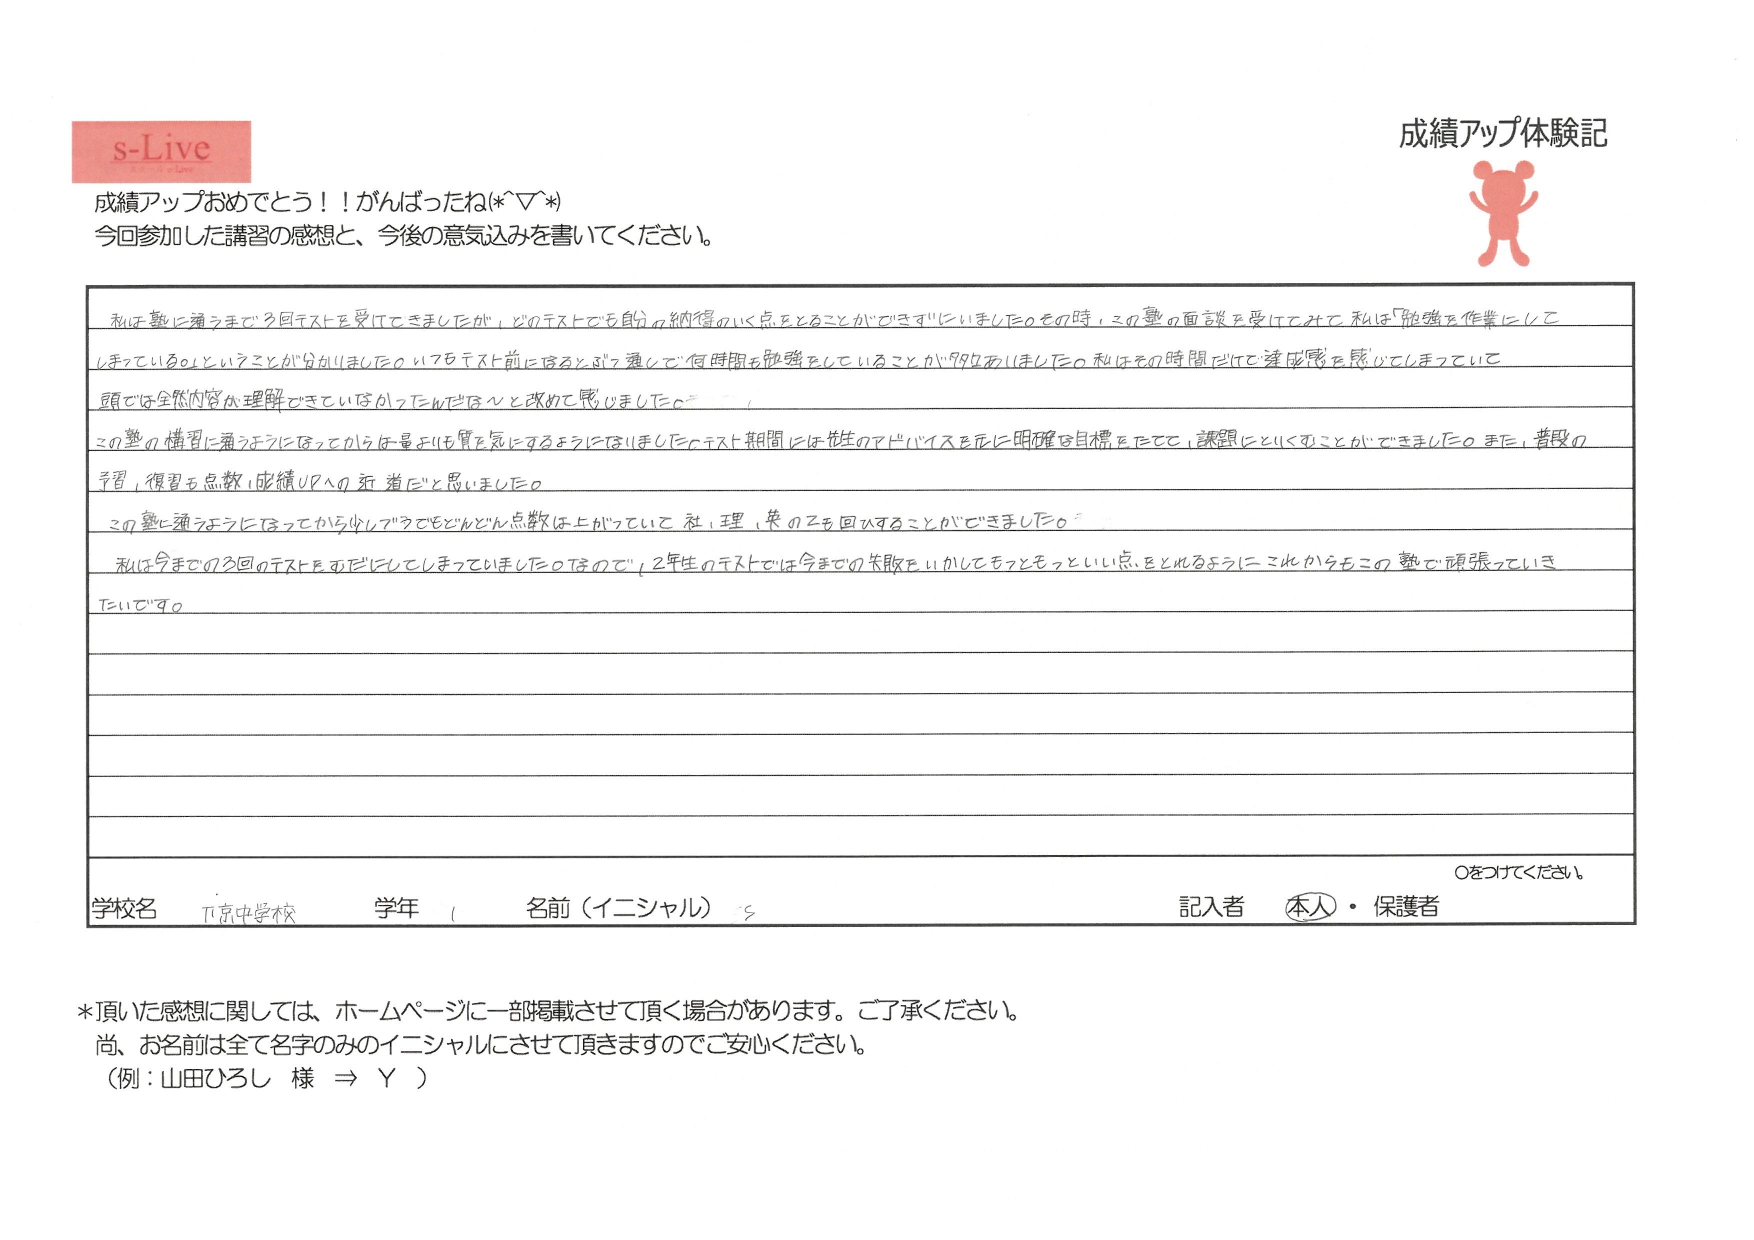 成績アップ体験記
s-Live
成績アップおめでとう！！がんばったね(*^▽^*)
今回参加した講習の感想と、今後の意気込みを書いてください。
私は塾に通うまで3回テストを受けてきましたが、どのテストでも自分の納得のいく点をとることができずにいました。その時、この塾の面談を受けてみて私は「勉強を作業にして
しまっている。」ということが分かりました。いつもテスト前になるとぶっ通しで何時間も勉強をしていることが多々ありました。私はその時間だけで達成感を感じてしまっていて
頭では全然内容が理解できていなかったんだな～と改めて感じました。
この塾の講習に通うようになってからは量よりも質を気にするようになりました。テスト期間には先生のアドバイスを元に明確な目標をたてて、課題にとりくむことができました。また、普段の
予習、復習も点数、成績UPへの近道だと思いました。
この塾に通うようになってから少しずつでもどんどん点数は上がっていて社、理、英の
回ひすることができました。
私は今までの3回のテストをむだにしてしまっていました。なので、2年生のテストでは今までの失敗をいかしてもっともっといい点をとれるようにこれからもこの塾で頑張っていき
たいです。
〇をつけてください。
学校名 京中学校 学年 1 名前（イニシャル） S 記入者 本人・保護者
＊頂いた感想に関しては、ホームページに一部掲載させて頂く場合があります。ご了承ください。
尚、お名前は全て名字のみのイニシャルにさせて頂きますのでご安心ください。
（例：山田ひろし 様 ⇒ Y ）